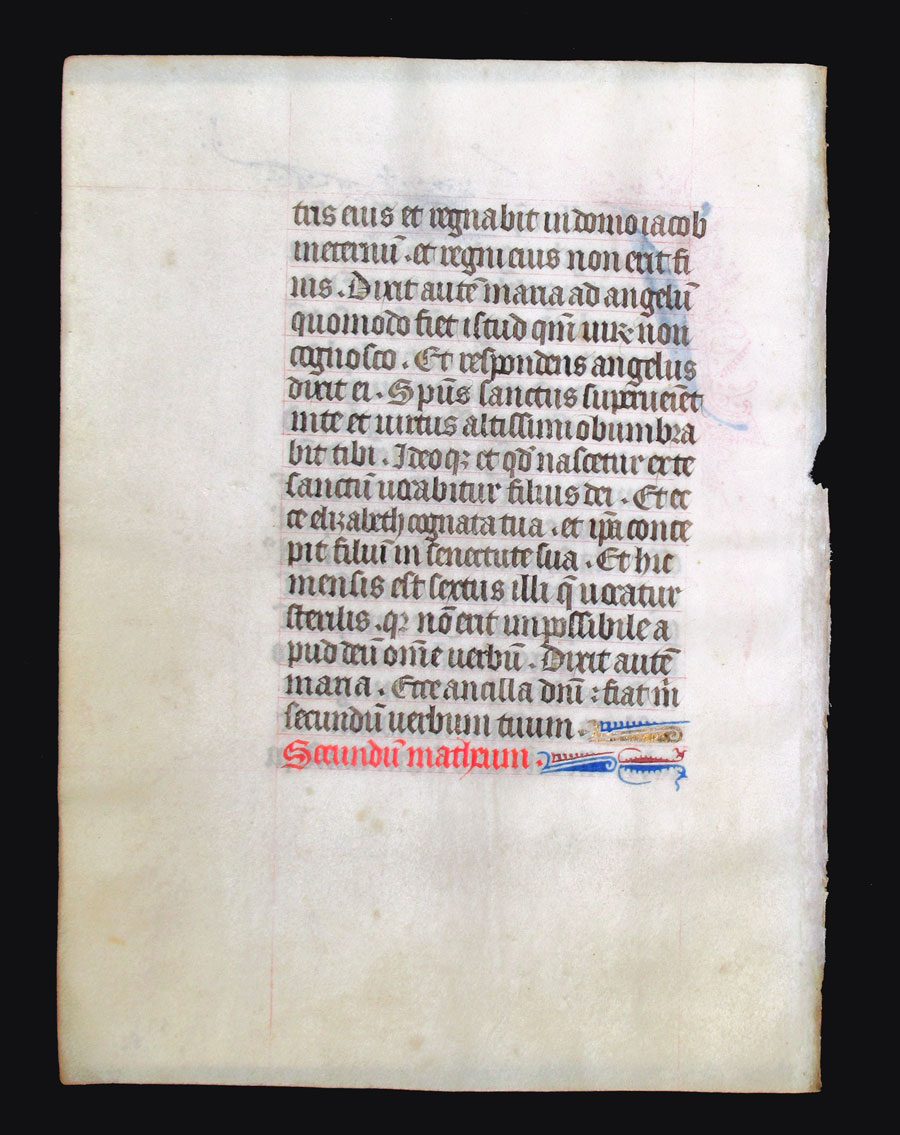 tris eius et regnabit in domo iacob
in eternū . et regni eius non erit fi
nis . Dixit autē maria ad angelū
quomodo fiet istud qm̄ uirꝫ non
cognosco . Et respondens angelus
dixit ei . Spūs sanctus superueiēt
in te et uirtus altissimi obumbra
bit tibi . Ideoqꝫ et qd̄ nascetur ex te
sanctū uocabitur filius dei . Et ec
ce elizabeth cognata tua . et ip̄a conce
pit filiū in senectute sua . Et hic
mensis est sextus illi q̄ uocatur
sterilis . qꝛ nō erit impossibile a
pud deū om̄e uerbū . Dixit autē
maria . Ecce ancilla dn̄i : fiat m̄
secundū uerbum tuum .
Secundū matheum .